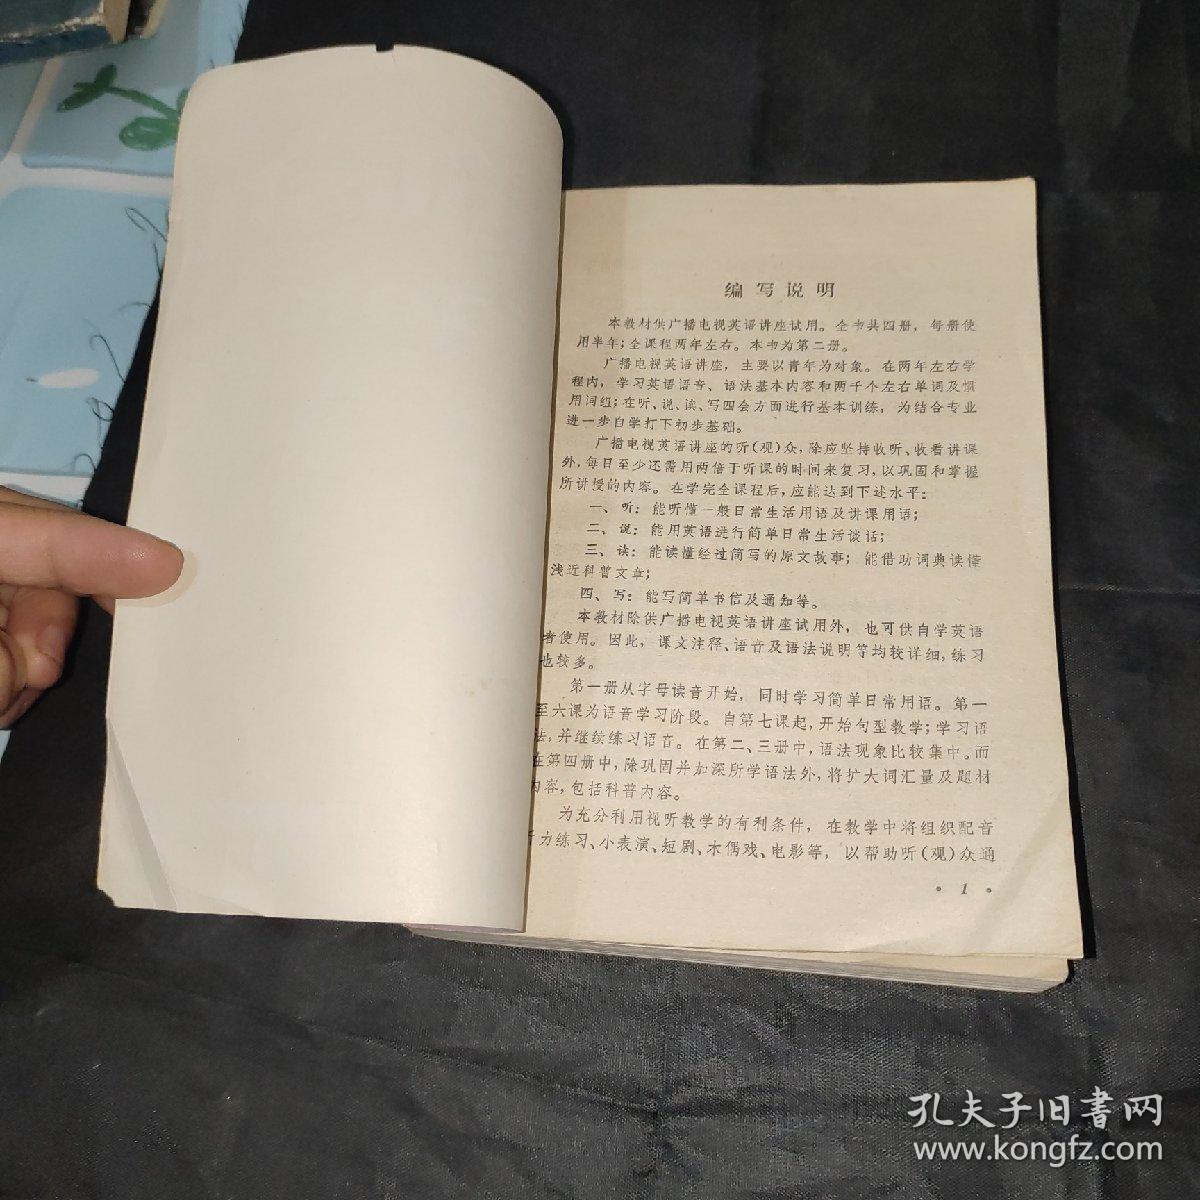 编写说明
本教材供广播电视英语讲座试用。全书共四册，每册使
用半年；全课程两年左右。本书为第二册。
广播电视英语讲座，主要以青年为对象。在两年左右学
程内，学习英语语音、语法基本内容和两千个左右单词及惯
用词组；在听、说、读、写四会方面进行基本训练，为结合专业
进一步自学打下初步基础。
广播电视英语讲座的听(观)众，除应坚持收听、收看讲课
外，每日至少还需用两倍于听课的时间来复习，以巩固和掌握
所讲授的内容。在学完全课程后，应能达到下述水平：
一、听：能听懂一般日常生活用语及讲课用语；
二、说：能用英语进行简单日常生活谈话；
三、读：能读懂经过简写的原文故事；能借助词典读懂
浅近科普文章；
四、写：能写简单书信及通知等。
本教材除供广播电视英语讲座试用外，也可供自学英语
者使用。因此，课文注释、语音及语法说明等均较详细，练习
也较多。
第一册从字母读音开始，同时学习简单日常用语。第一
至六课为语音学习阶段。自第七课起，开始句型教学；学习语
法，并继续练习语音。在第二、三册中，语法现象比较集中。而
在第四册中，除巩固并加深所学语法外，将扩大词汇量及题材
内容，包括科普内容。
为充分利用视听教学的有利条件，在教学中将组织配音
听力练习、小表演、短剧、木偶戏、电影等，以帮助听(观)众通
• 1 •
孔夫子旧書网
www.kongfz.com